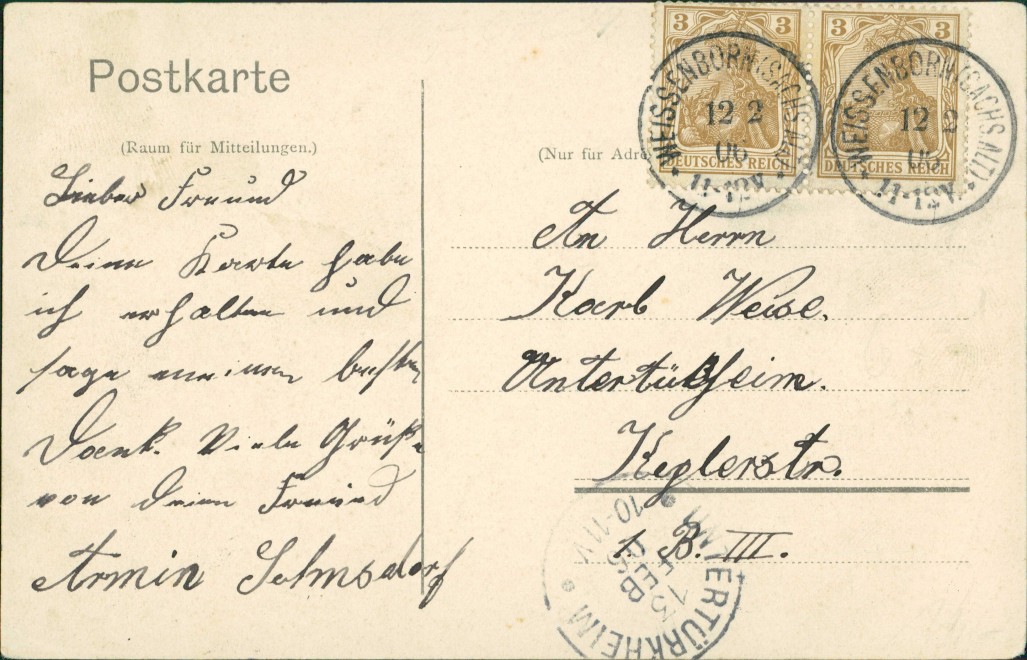 Postkarte
(Raum für Mitteilungen.)
Lieber Freund
Deine Karte habe
ich erhalten und
sage meinen besten
Dank. Viele Grüße
von deinem Freund
Armin
3 3
DEUTSCHES REICH
3 3
DEUTSCHES REICH
WEISSENBORN (SACHS.ALT)
12 2
06
11-12V.
WEISSENBORN (SACHS.ALT)
12 2
06
11-12V.
(Nur für Adre
An Herrn
Karl Weise.
Untertürkheim.
Keplerstr.
1 B. III.
UNTERTÜRKHEIM
13 FEB
10-11V